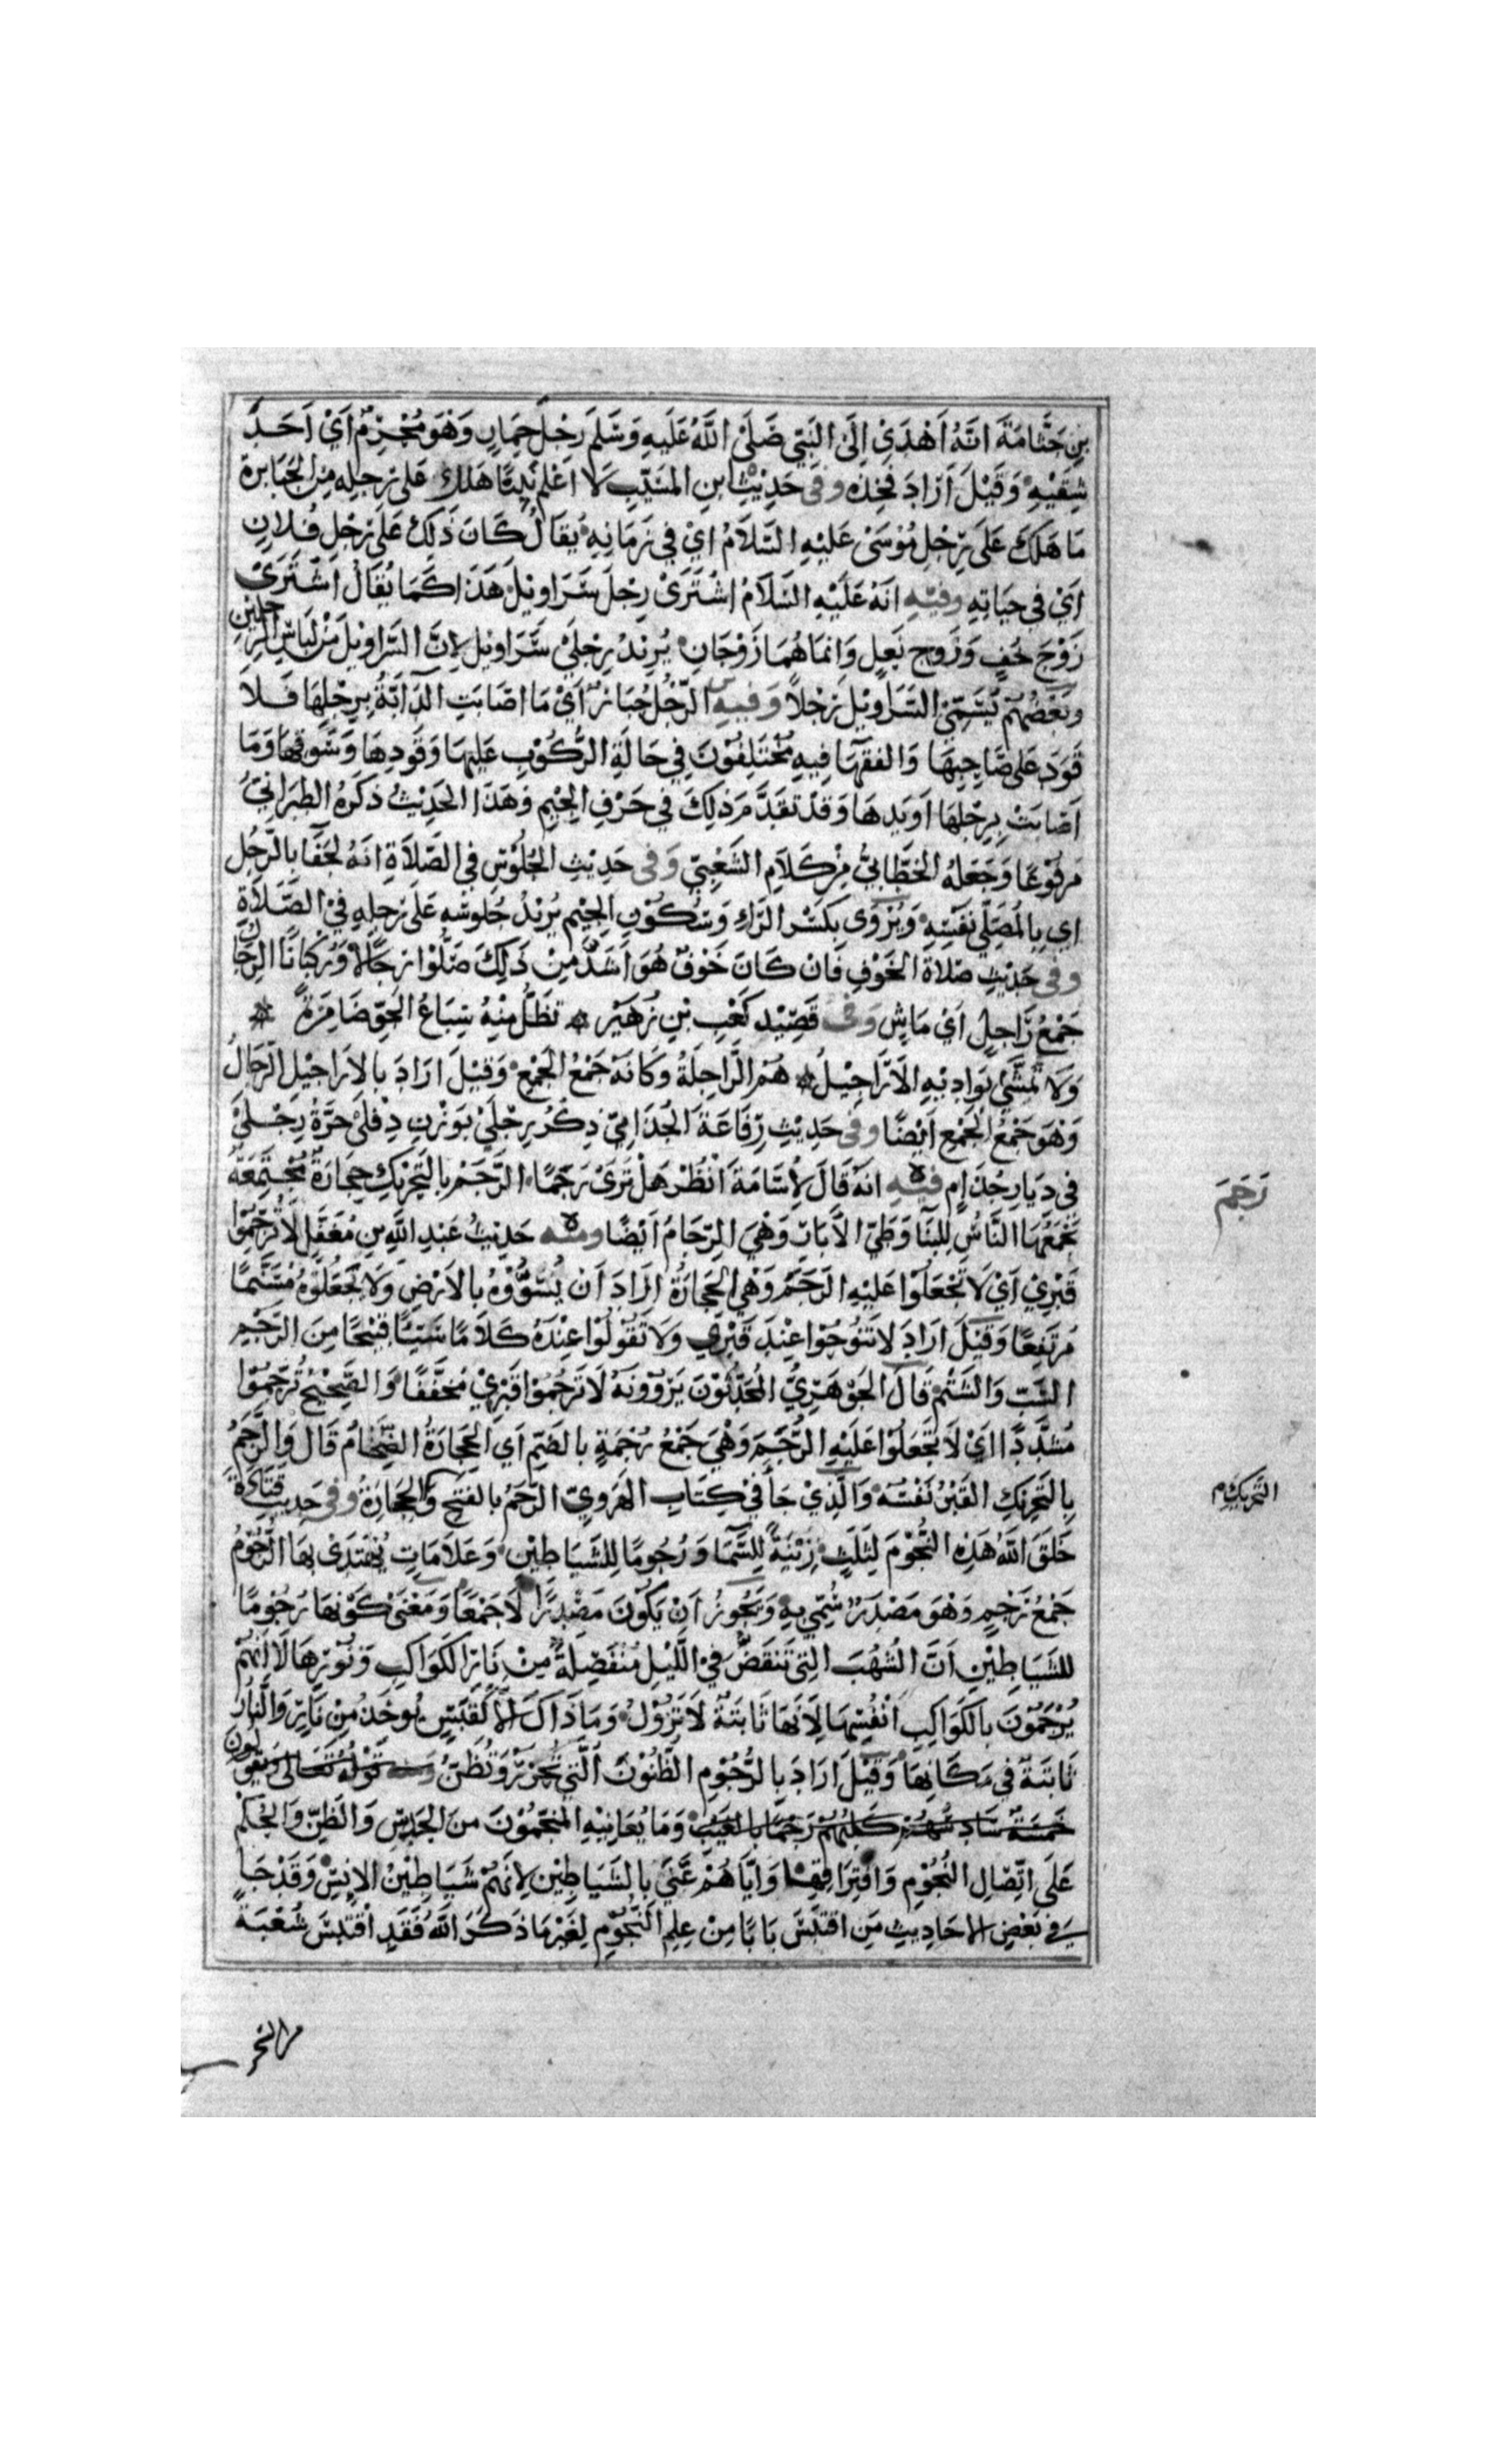 بن جثامة انه اهدى الى النبي صلى الله عليه وسلم رجل حمار وهو محرم اي احد
شقيه وقيل اراد فخذه وفى حديث ابن المسيب لا اعلم نبيا هلك على رجله من الجبابرة
ما هلك على رجل موسى عليه السلام اي في زمانه يقال كان ذلك على رجل فلان
اي في حياته وفيه انه عليه السلام اشترى رجل سراويل هذا كما يقال اشترى
زوج خف وزوج نعل وانما هما زوجان يريد رجلي سراويل لان السراويل من لباس الرجلين
وبعضهم يسمي السراويل رجلا وفيه الرجل جبار اي ما اصابت الدابة برجلها فلا
قود على صاحبها والفقها فيه مختلفون في حالة الركوب عليها وقودها وسوقها وما
اصابت برجلها او يدها وقد تقدم ذلك في حرف الجيم وهذا الحديث ذكره الطبراني
مرفوعا وجعله الخطابي من كلام الشعبي وفى حديث الجلوس في الصلاة انه لجفا بالرجل
اي بالمصلي نفسه ويروى بكسر الراء وسكون الجيم يريد جلوسه على رجله في الصلاة
وفى حديث صلاة الخوف فان كان خوف هو اشد من ذلك صلوا رجالا وركبانا الرجال
جمع راجل اي ماش وفى قصيد كعب بن زهير * تظل منه سباع الجو ضامزة *
ولا تمشي بواديه الاراجيل * هم الراجلة وكانه جمع الجمع وقيل اراد بالاراجيل الرجال
وهو جمع الجمع ايضا وفى حديث رفاعة الجذامي ذكر رجلي بوزن دفلى حرة رجلي
في ديار جذام فيه انه قال لاسامة انظر هل ترى رجما الرجم بالتحريك حجارة مجتمعة
رجم
يجمعها الناس للبنا وطي الابار وهي الرجام ايضا ومنه حديث عبد الله بن مغفل لا ترجموا
قبري اي لا تجعلوا عليه الرجم وهي الحجارة اراد ان يسووه بالارض ولا يجعلوه مسنما
مرتفعا وقيل اراد لا تنوحوا عند قبري ولا تقولوا عنده كلاما سيئا قبيحا من الرجم
السب والشتم قال الجوهري المحدثون يروونه لا ترجموا قبري مخففا والصحيح ترجموا
مشددا اي لا تجعلوا عليه الرجم وهي جمع رجمة بالضم اي الحجارة الضخام قال والرجم
بالتحريك القبر نفسه والذي جا في كتاب الهروي الرجم بالفتح والحجارة وفى حديث قتادة
التحريك م
خلق الله هذه النجوم لثلث زينة للسما ورجوما للشياطين وعلامات يهتدى بها الرجوم
جمع رجم وهو مصدر سمي به ويجوز ان يكون مصدرا لا جمعا ومعنى كونها رجوما
للشياطين ان الشهب التي تنقض في الليل منفصلة من نار الكواكب ونورها لا انهم
يرجمون بالكواكب انفسها لانها ثابتة لا تزول وما ذاك الا كقبس يوخذ من نار والنار
ثابتة في مكانها وقيل اراد بالرجوم الظنون التي تحزر وتظن ومنه قوله تعالى ويقولون
خمسة سادسهم كلبهم رجما بالغيب وما يعانيه المنجمون من الحدس والظن والحكم
على اتصال النجوم وافتراقها واياهم عنى بالشياطين لانهم شياطين الانس وقد جا
في بعض الاحاديث من اقتبس بابا من علم النجوم لغير ما ذكر الله فقد اقتبس شعبة
من السحر